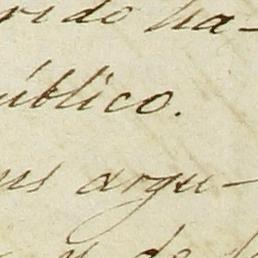 rido ha-
úblico.
us argu-
y de